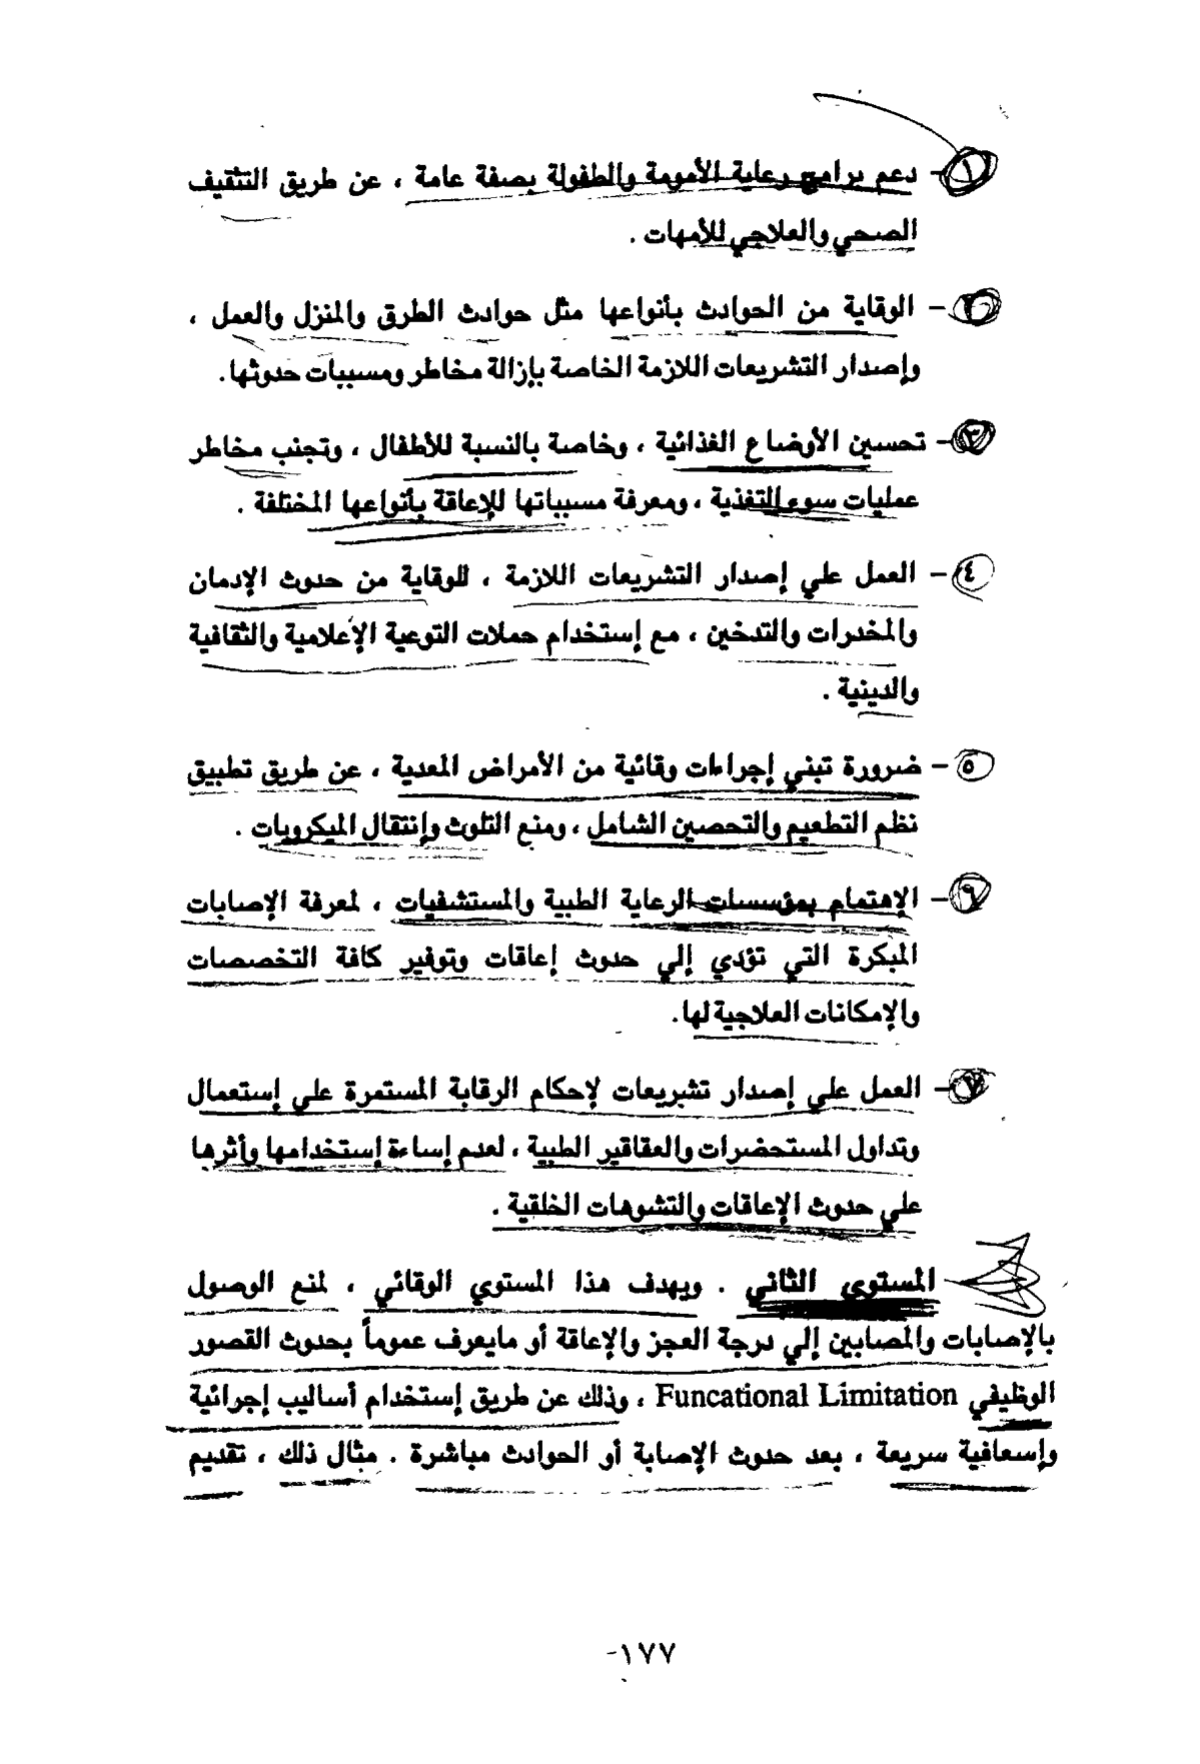 ١- دعم برامج رعاية الأمومة والطفولة بصفة عامة ، عن طريق التثقيف
الصحي والعلاجي للأمهات .
٢- الوقاية من الحوادث بأنواعها مثل حوادث الطرق والمنزل والعمل ،
وإصدار التشريعات اللازمة الخاصة بإزالة مخاطر ومسببات حدوثها .
٣- تحسين الأوضاع الغذائية ، وخاصة بالنسبة للأطفال ، وتجنب مخاطر
عمليات سوء التغذية ، ومعرفة مسبباتها للإعاقة بأنواعها المختلفة .
٤- العمل علي إصدار التشريعات اللازمة ، للوقاية من حدوث الإدمان
والمخدرات والتدخين ، مع إستخدام حملات التوعية الإعلامية والثقافية
والدينية .
٥- ضرورة تبني إجراءات وقائية من الأمراض المعدية ، عن طريق تطبيق
نظم التطعيم والتحصين الشامل ، ومنع التلوث وإنتقال الميكروبات .
٦- الإهتمام بمؤسسات الرعاية الطبية والمستشفيات ، لمعرفة الإصابات
المبكرة التي تؤدي إلي حدوث إعاقات وتوفير كافة التخصصات
والإمكانات العلاجية لها .
٧- العمل علي إصدار تشريعات لإحكام الرقابة المستمرة علي إستعمال
وتداول المستحضرات والعقاقير الطبية ، لعدم إساءة إستخدامها وأثرها
علي حدوث الإعاقات والتشوهات الخلقية .
المستوي الثاني . ويهدف هذا المستوي الوقائي ، لمنع الوصول
بالإصابات والمصابين إلي درجة العجز والإعاقة أو مايعرف عموماً بحدوث القصور
الوظيفي Funcational Limitation ، وذلك عن طريق إستخدام أساليب إجرائية
وإسعافية سريعة ، بعد حدوث الإصابة أو الحوادث مباشرة . مثال ذلك ، تقديم
-١٧٧